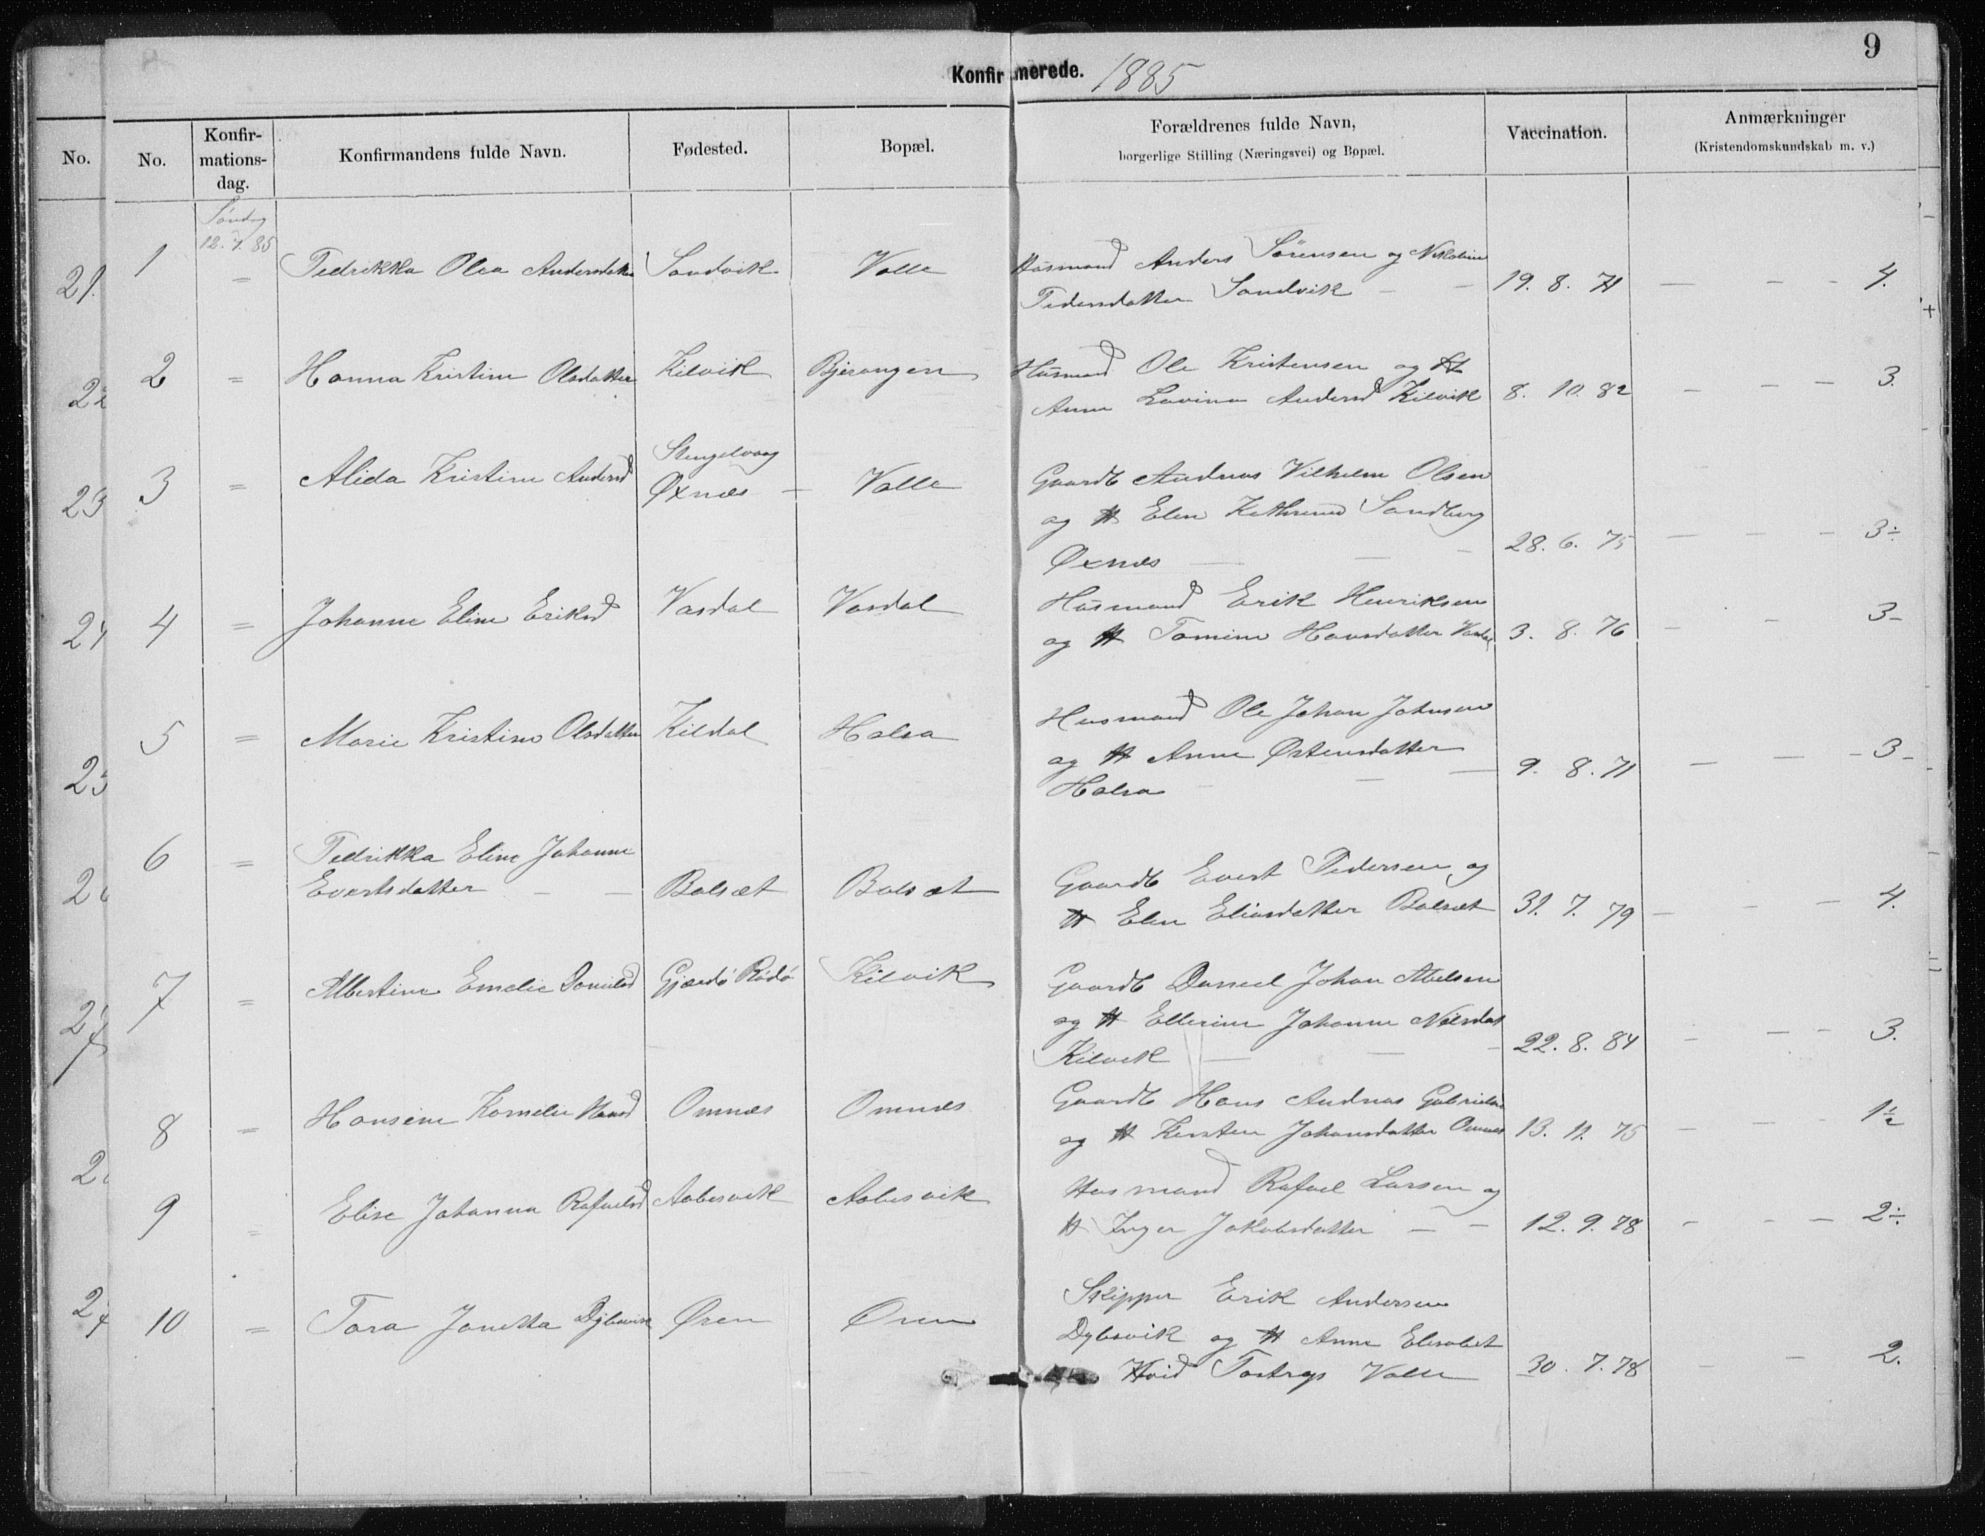 9
Konfirmerede. 1885
No.
No.
Konfir-
mations-
dag.
Konfirmandens fulde Navn.
Fødested.
Bopæl.
Forældrenes fulde Navn,
borgerlige Stilling (Næringsvei) og Bopæl.
Vaccination.
Anmærkninger
(Kristendomskundskab m. v.)
Søndag
12. 7. 85
21.
1
=
Pedrikka Olea Andersdatter
Sandvik
Valla
Husmand Anders Sørensen og Nikoline
Pedersdatter Sandvik — —
19. 8. 71
— — —
4.
22
2
=
Hanna Kristine Olsdatter
Kilvik
Bjerangen
Husmand Ole Kristensen og H
Anne Lovina Andersd Kilvik
8. 10. 82
— — —
3.
23
3
=
Alida Kristine Andersd
Stengelvaag
Øxnes —
Valla
Gaardb Andreas Vilhelm Olsen
og H Elen Kathrine Sandberg
Øxnæs — — —
28. 6. 75
— — —
3÷
24
4
=
Johanne Eline Eriksd
Vasdal
Vasdal
Husmand Erik Henriksen
og H Tomine Hansdatter Vasdal
3. 8. 76
— —
3-
25
5
=
Marie Kristine Olsdatter
Kildal
Halsa
Husmand Ole Johan Johnsen
og H Anne Østensdatter
Halsa — — —
9. 8. 71
— — —
3-
2
6
=
Pedrikka Eline Johanne
Evertsdatter — —
Balsæt
Balsæt
Gaardb Evert Pedersen og
H Elen Eliasdatter Balsæt
31. 7. 79
— — —
4.
27
7
=
Albertine Emelie Danielsd
Gjærdø Rødø
Kilvik
Gaardb Daniel Johan Abelsen
og H Ellerine Johanne Nilsdat
Kilvik — — —
22. 8. 84
— — —
3.
2
8
=
Hansine Kornelie Hansd
Omnæs
Omnæs
Gaardb Hans Andreas Gabrielsen
og H Kirsten Johansdatter Omnæs
13. 11. 75
— —
1½
9
=
Elise Johanna Rafaelsd
Aabesvik
Aabesvik
Husmand Rafael Larsen og
H Inger Jakobsdatter — —
12. 9. 78
— — —
2÷
2
10
=
Tora Jonetta Dybsvik
Øren
Øren
Skipper Erik Andersen
Dybsvik og H Anne Elisabet
Hvid Valla
30. 7. 78
— —
2.